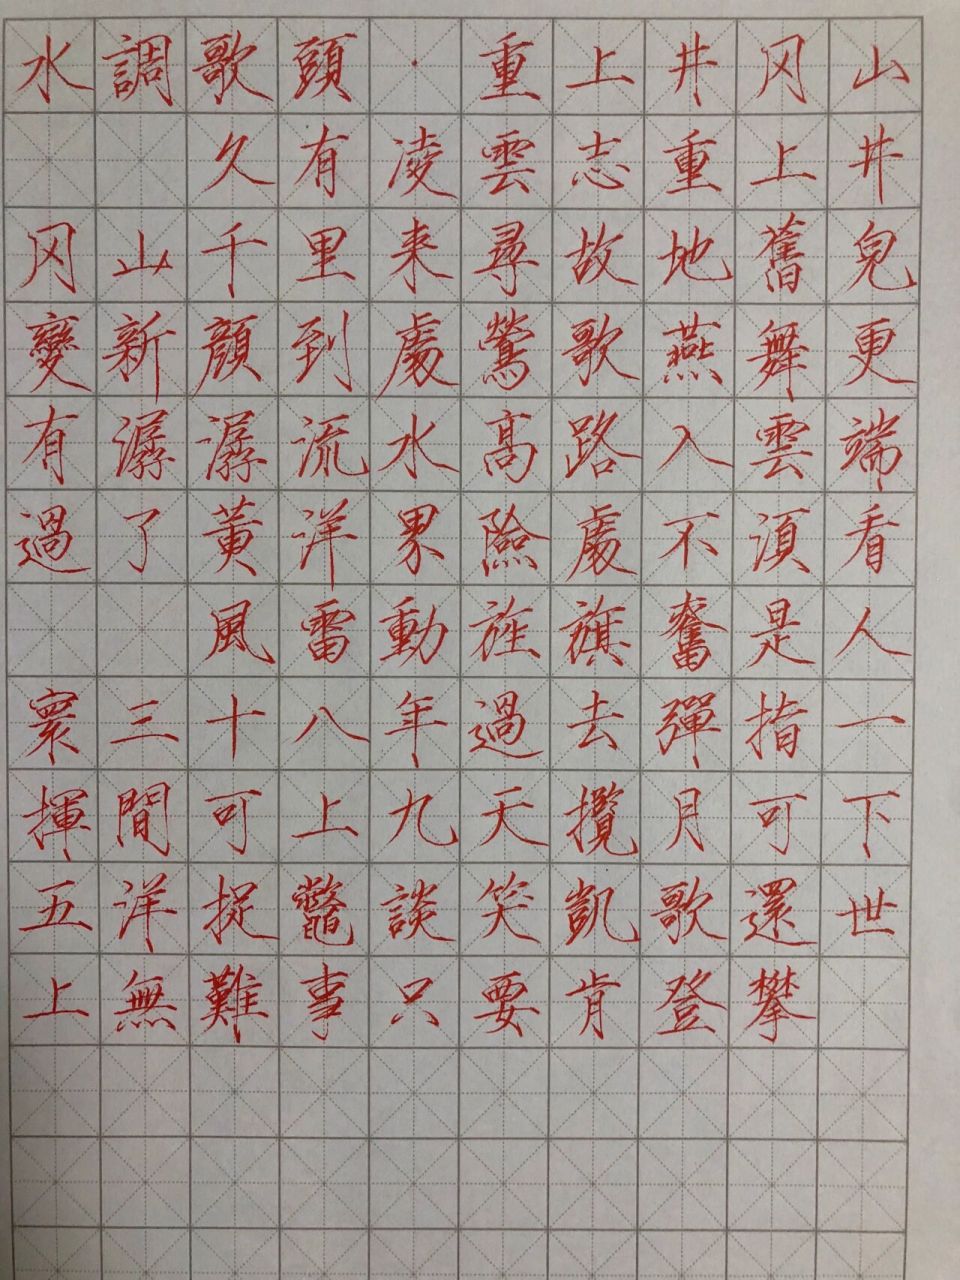 水調歌頭·重上井冈山
久有凌雲志重上井
冈山千里来尋故地舊皃
變新顔到處鶯歌燕舞更
有潺潺流水高路入雲端
過了黄洋界險處不湏看
風雷動旌旗奮是人
寰三十八年過去彈指一
揮間可上九天攬月可下
五洋捉鼈談笑凱歌還世
上無難事只要肯登攀